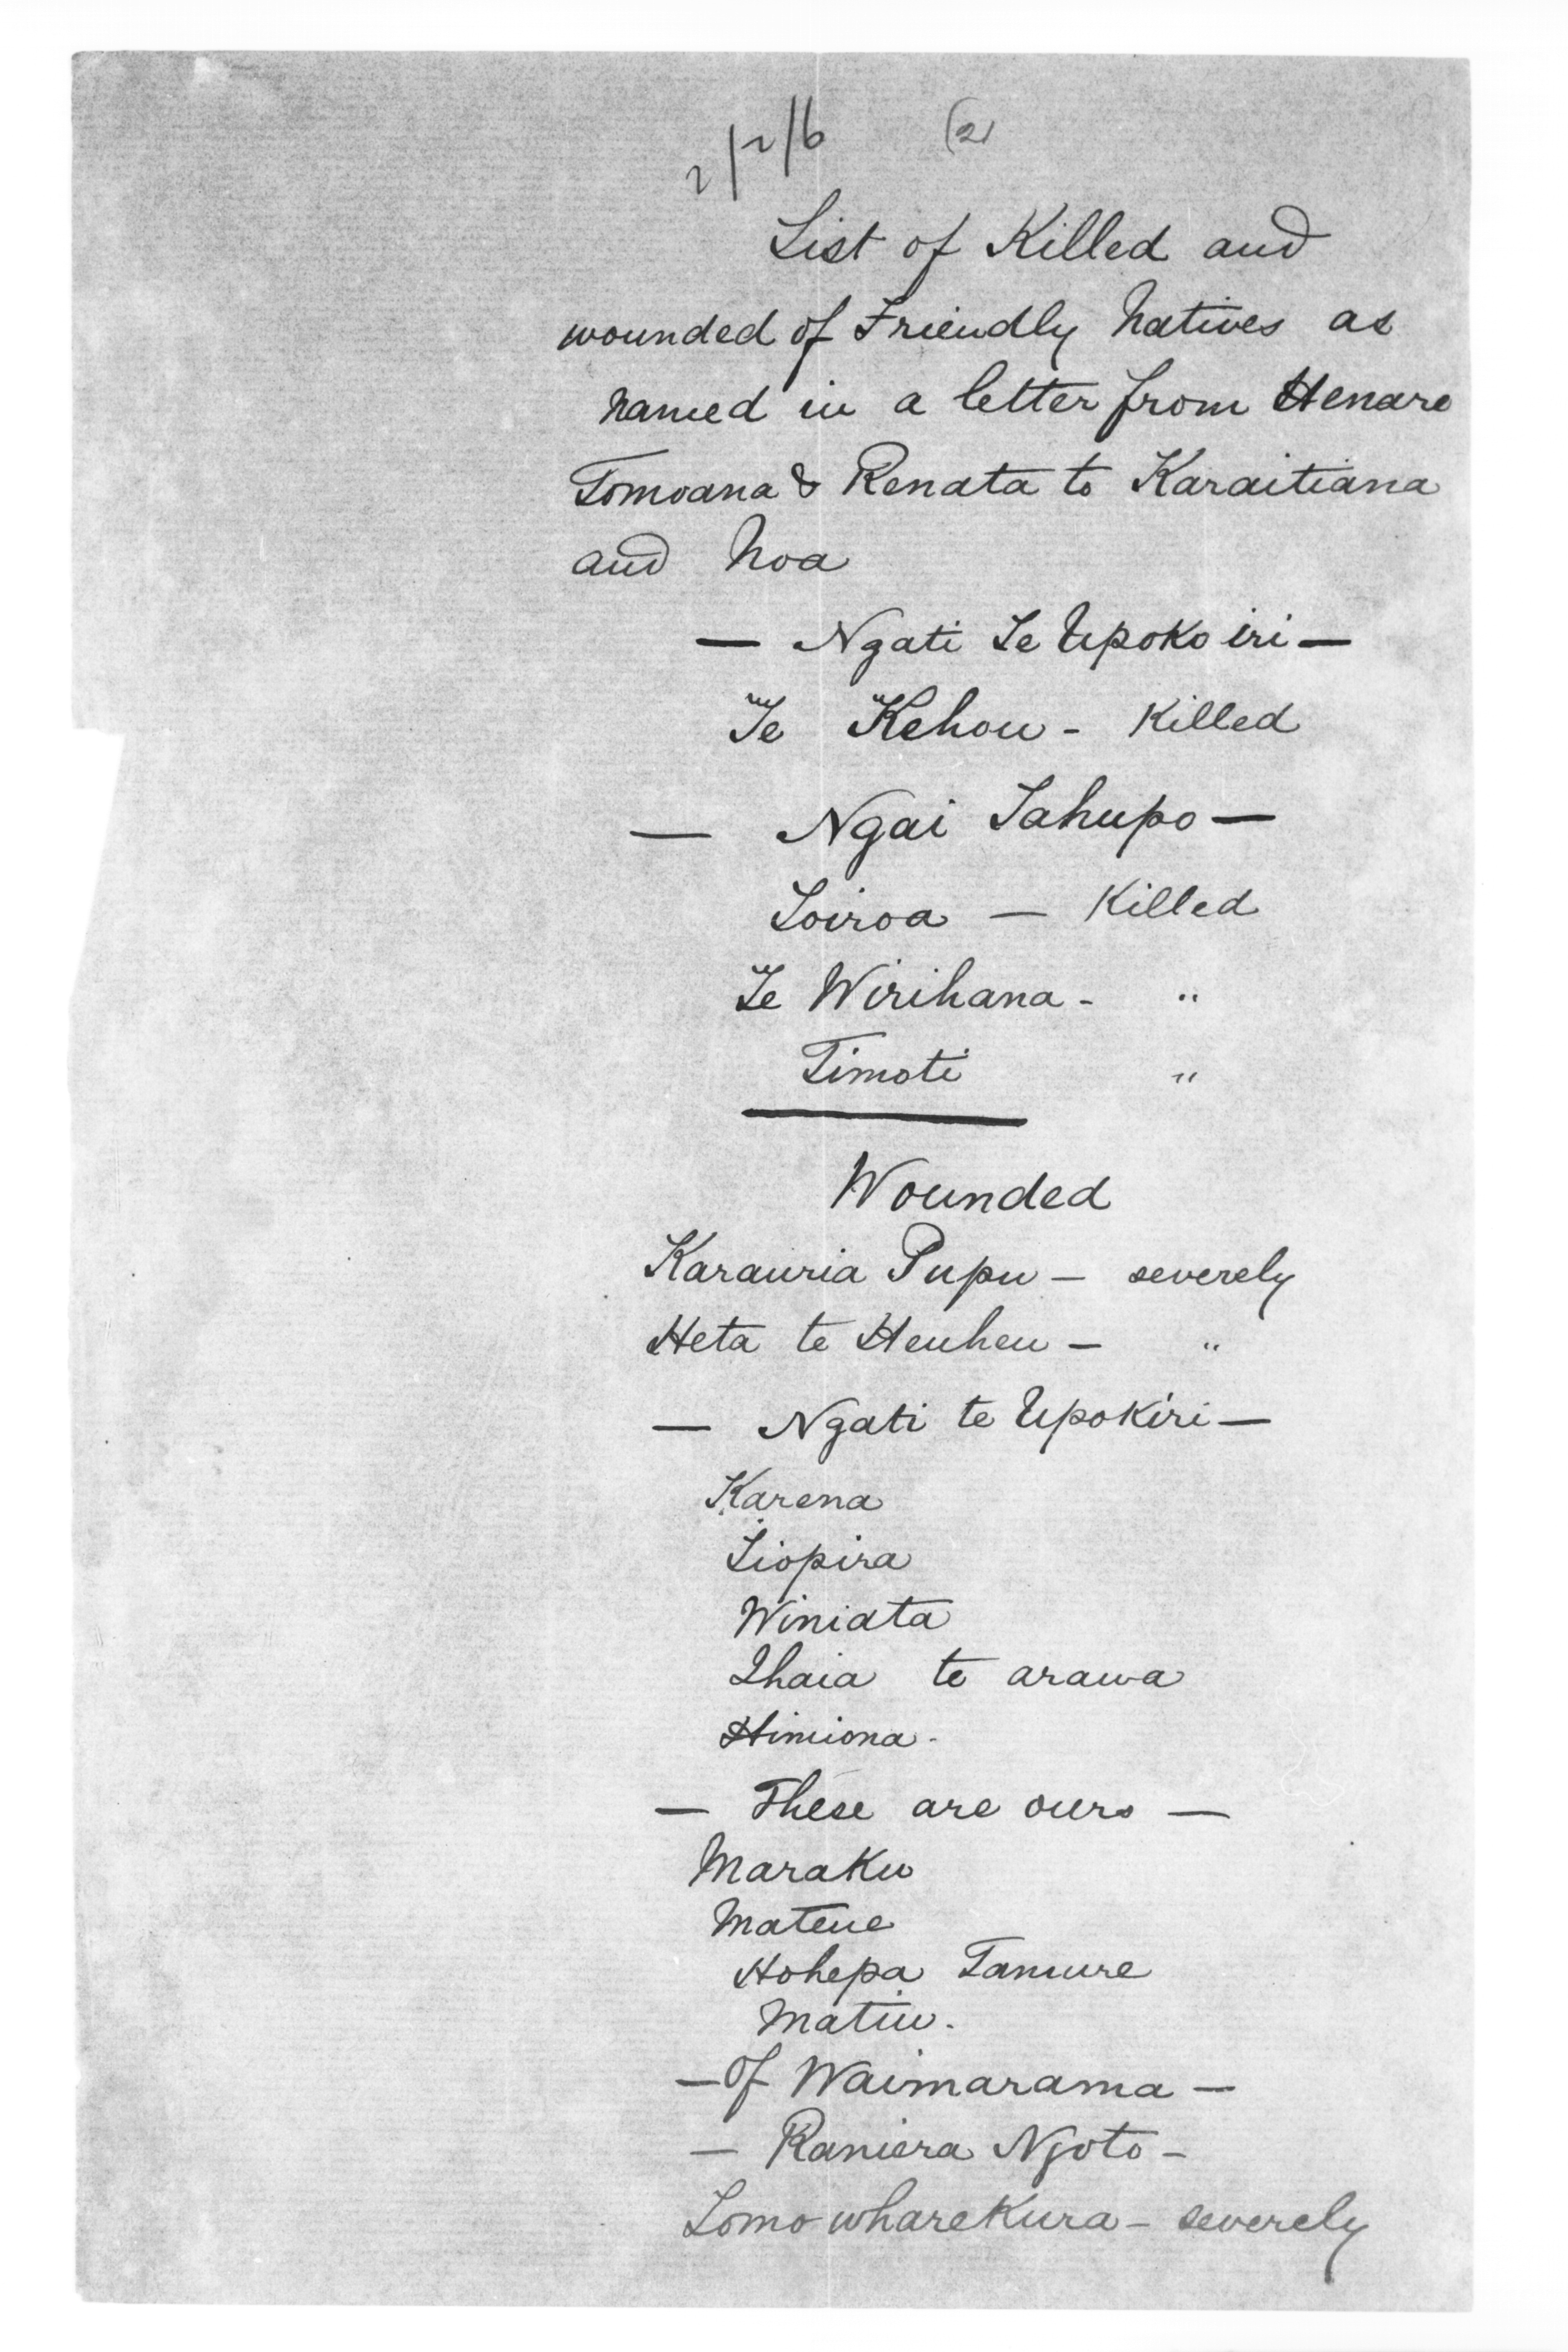 2/2/6 (2)
List of Killed and
wounded of Friendly Natives as
named in a letter from Henare
Tomoana & Renata to Karaitiana
and Noa
— Ngati Te Upoko iri —
Te Kehou - Killed
— Ngai Tahupo —
Toiroa — Killed
Te Wirihana - "
Timoti "
Wounded
Karauria Pupu — severely
Heta te Heuheu — "
— Ngati te Upokiri —
Karena
Tiopira
Winiata
Ihaia te arawa
Himiona -
— These are ours —
Maraku
Matene
Hohepa Tamure
Matiu.
— Of Waimarama —
— Raniera Ngoto -
Tomo wharekura — severely